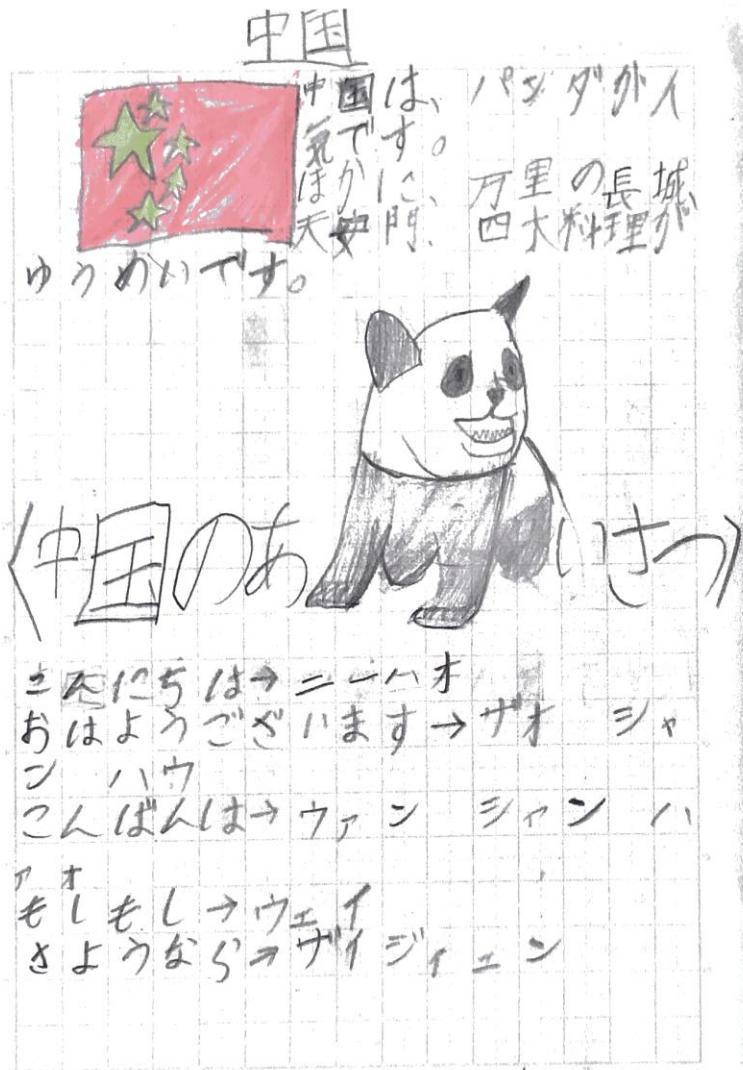 中国
中国は、パンダが人
気です。
ほかに、万里の長城、
天安門、四大料理が
ゆうめいです。
〈中国のあいさつ〉
こんにちは→ニーハオ
おはようございます→ザオ シャ
ン ハウ
こんばんは→ウァン シャン ハ
アオ
もしもし→ウェイ
さようなら→ザイジィエン